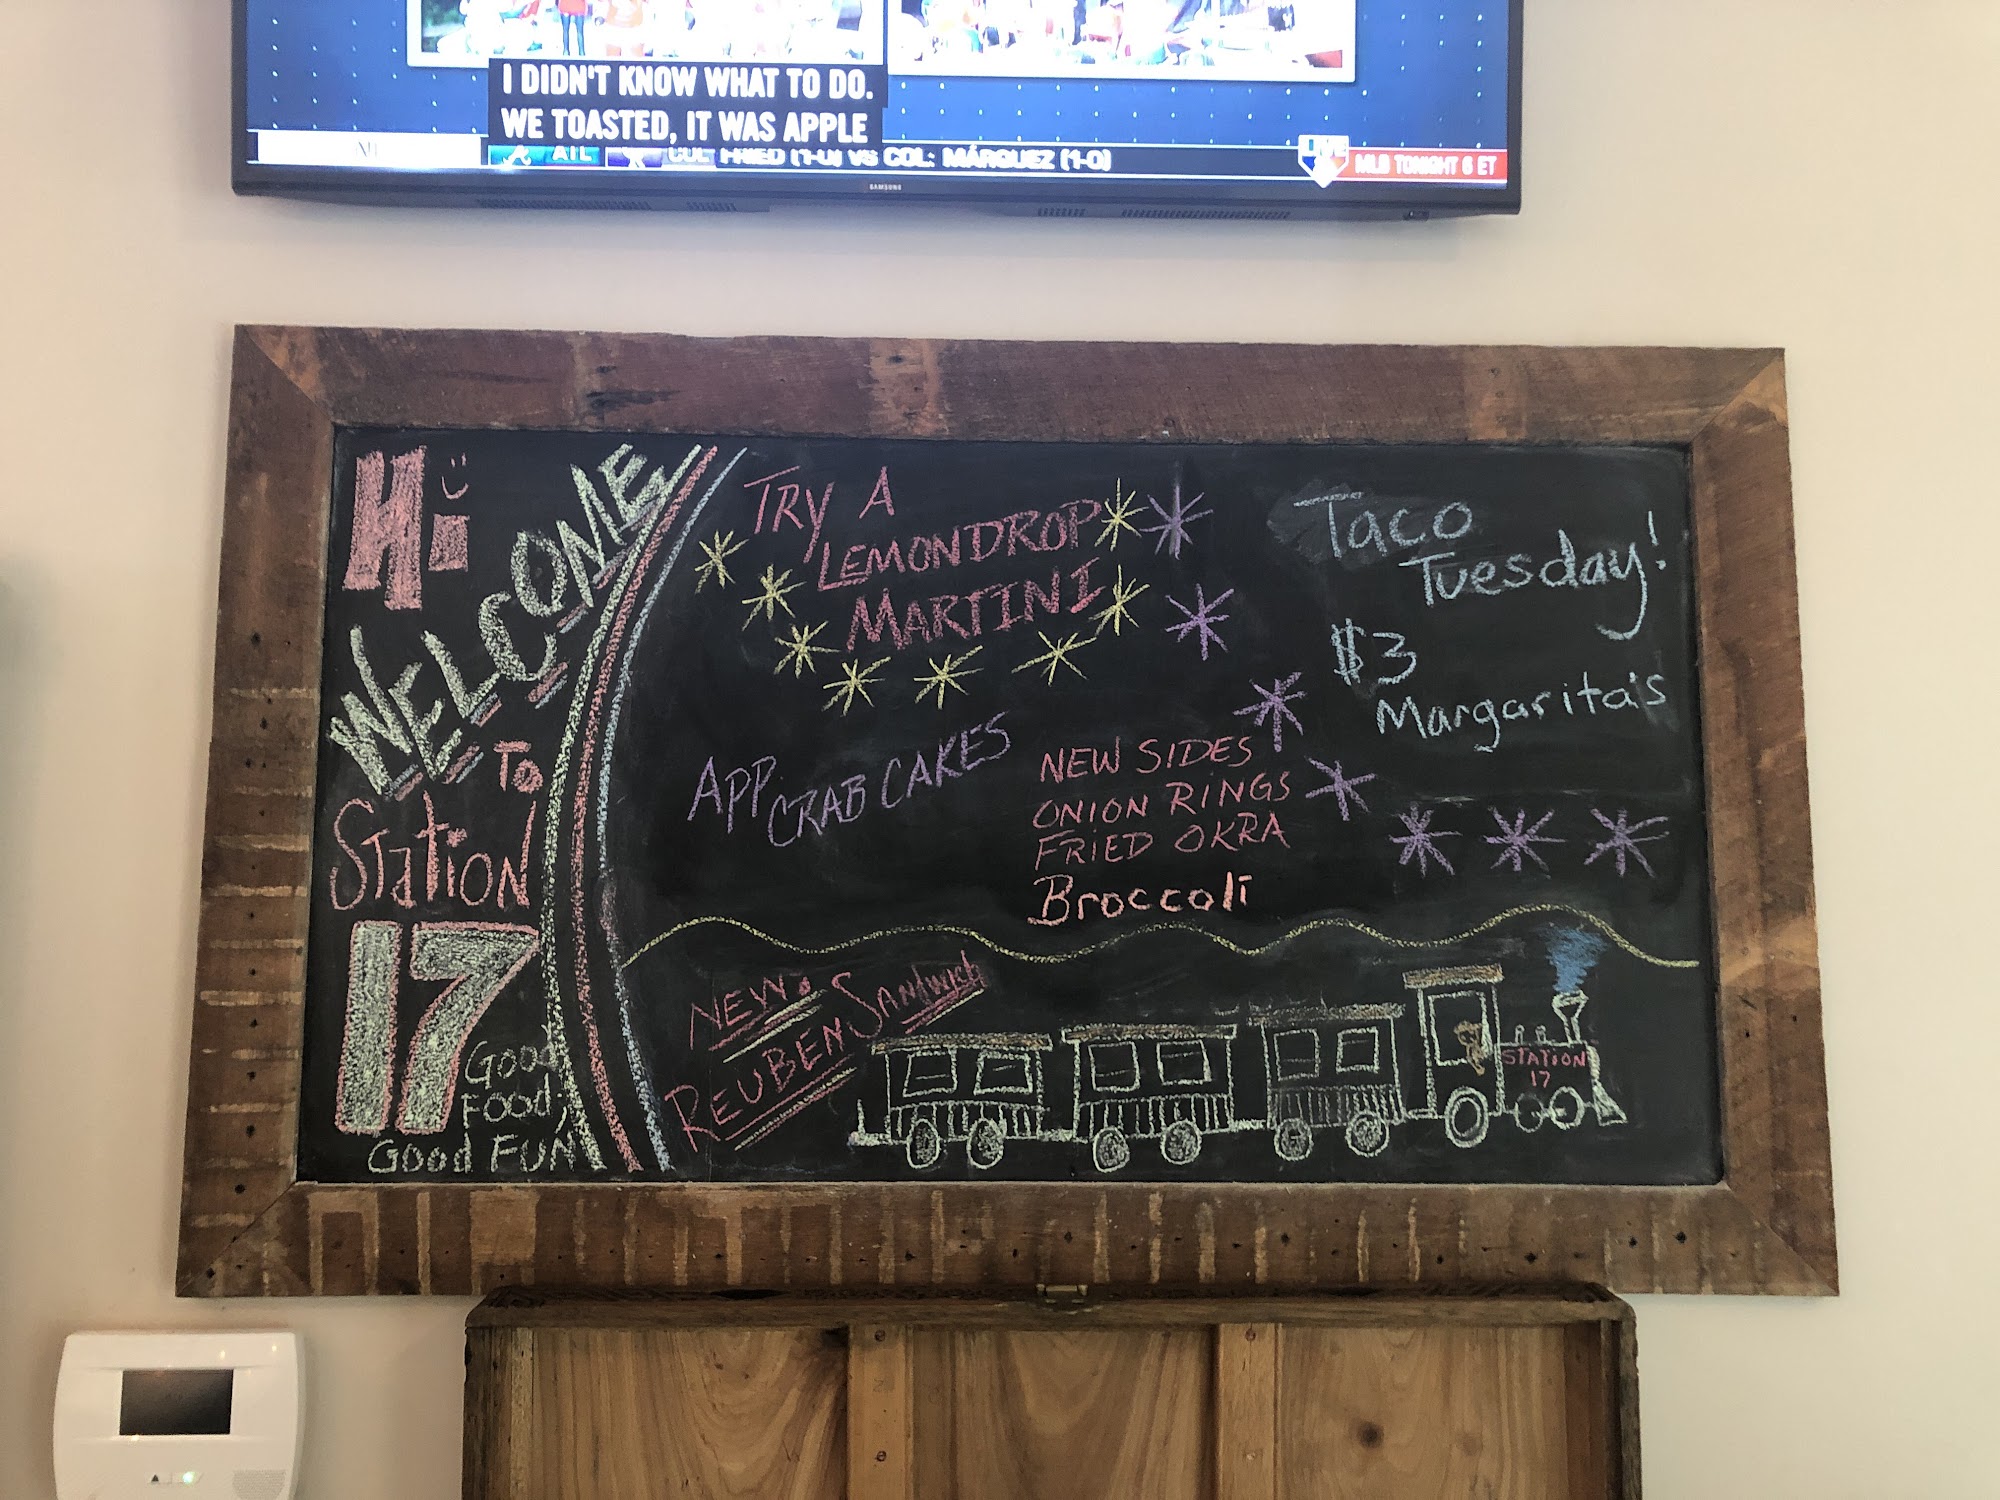 I DIDN'T KNOW WHAT TO DO.
WE TOASTED, IT WAS APPLE
ATL COL FRIED (1-0) VS COL: MÁRQUEZ (1-0)
LIVE MLB TONIGHT 6 ET
SAMSUNG
Hi
WELCOME
To
Station
17
Good
Food,
Good FUN
TRY A
LEMONDROP
MARTINI
APP.
CRAB CAKES
NEW SIDES
ONION RINGS
FRIED OKRA
Broccoli
Taco
Tuesday!
$3
Margarita's
NEW.
REUBEN SANDWICH
STATION
17